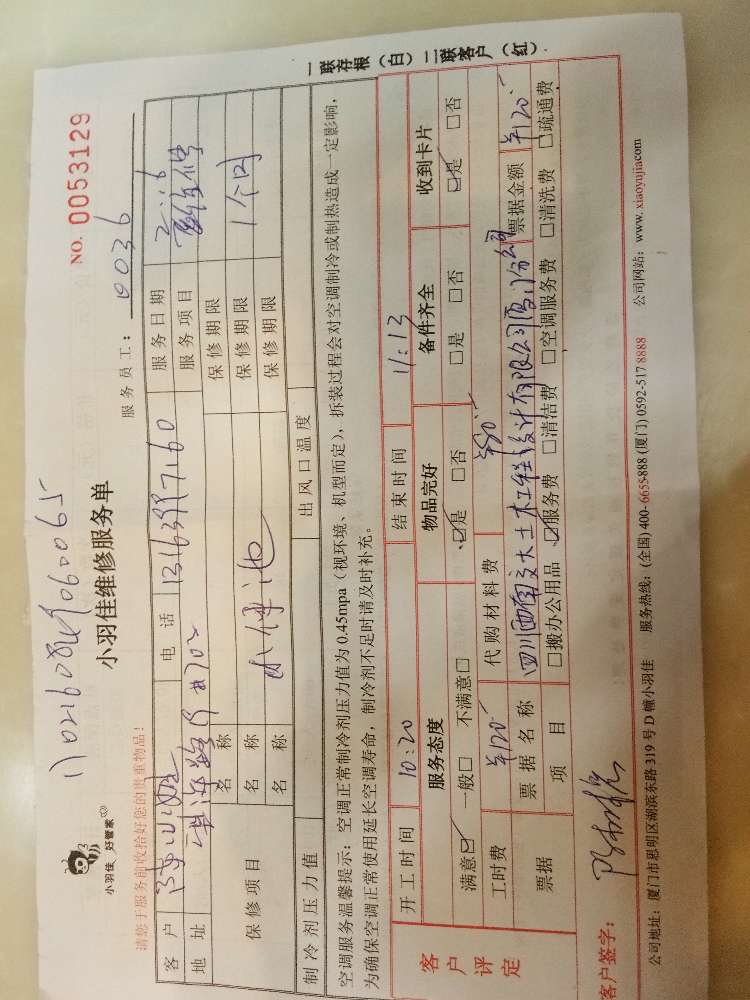 小羽佳 好管家
小羽佳维修服务单
NO. 0053129
请您于服务前收拾好您的贵重物品！
服务员工：0036
客户 电话 服务日期 2.16
地址 服务项目
保修项目 名称 保修期限
名称 保修期限 1个月
名称 保修期限
制冷剂压力值 出风口温度
空调服务温馨提示：空调正常制冷剂压力值为0.45mpa（视环境、机型而定），拆装过程会对空调制冷或制热造成一定影响，
为确保空调正常使用延长空调寿命，制冷剂不足时请及时补充。
客户评定
开工时间 10:20 结束时间 11:13
服务态度 物品完好 备件齐全 收到卡片
满意☑ 一般□ 不满意□ ☑是 □否 □是 □否 ☑是 □否
工时费 ¥120 代购材料费 ¥80
票据 票据名称 四川西南交大土木工程设计有限公司厦门分公司 票据金额 ¥120
项目 □搬办公用品 ☑服务费 □清洁费 □空调服务费 □清洗费 □疏通费
客户签字：
公司地址：厦门市思明区湖滨东路319号D幢小羽佳 服务热线：(全国) 400-6655-888 (厦门) 0592-517 8888 公司网站：www.xiaoyujia.com
一联存根（白）二联客户（红）